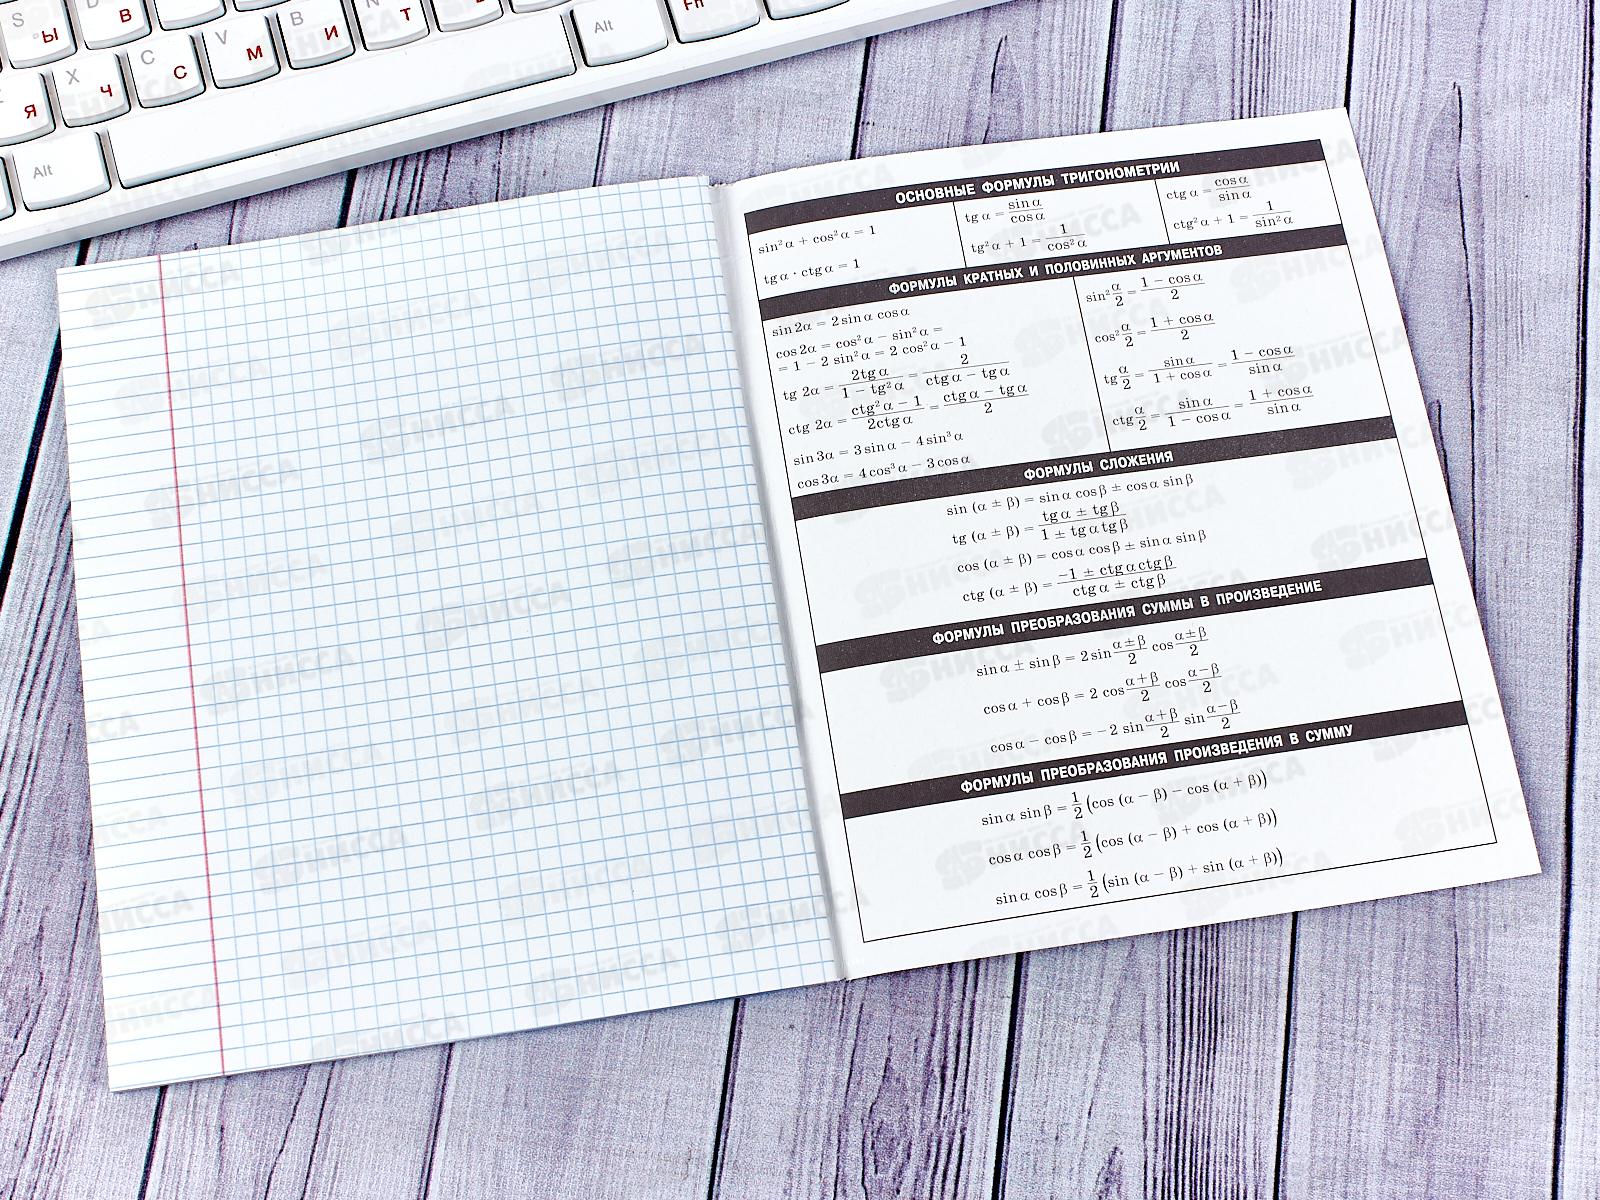 S Ы D В
Я X Ч C С V М B И N Т Alt Fn
Alt
ОСНОВНЫЕ ФОРМУЛЫ ТРИГОНОМЕТРИИ
sin²α + cos²α = 1
tgα · ctgα = 1
tgα = sinα/cosα
tg²α + 1 = 1/cos²α
ctgα = cosα/sinα
ctg²α + 1 = 1/sin²α
ФОРМУЛЫ КРАТНЫХ И ПОЛОВИННЫХ АРГУМЕНТОВ
sin2α = 2sinα cosα
cos2α = cos²α − sin²α =
= 1 − 2 sin²α = 2 cos²α − 1
tg 2α = 2tgα/(1 − tg²α) = 2/(ctgα − tgα)
ctg 2α = (ctg²α − 1)/(2ctgα) = (ctgα − tgα)/2
sin3α = 3sinα − 4sin³α
cos3α = 4cos³α − 3cosα
sin² α/2 = (1 − cosα)/2
cos² α/2 = (1 + cosα)/2
tg α/2 = sinα/(1 + cosα) = (1 − cosα)/sinα
ctg α/2 = sinα/(1 − cosα) = (1 + cosα)/sinα
ФОРМУЛЫ СЛОЖЕНИЯ
sin (α ± β) = sinα cosβ ± cosα sinβ
tg (α ± β) = (tgα ± tgβ)/(1 ± tgα tgβ)
cos (α ± β) = cosα cosβ ± sinα sinβ
ctg (α ± β) = (−1 ± ctgα ctgβ)/(ctgα ± ctgβ)
ФОРМУЛЫ ПРЕОБРАЗОВАНИЯ СУММЫ В ПРОИЗВЕДЕНИЕ
sinα ± sinβ = 2sin (α±β)/2 cos (α±β)/2
cosα + cosβ = 2 cos (α+β)/2 cos (α−β)/2
cosα − cosβ = −2 sin (α+β)/2 sin (α−β)/2
ФОРМУЛЫ ПРЕОБРАЗОВАНИЯ ПРОИЗВЕДЕНИЯ В СУММУ
sinα sinβ = 1/2 (cos (α − β) − cos (α + β))
cosα cosβ = 1/2 (cos (α − β) + cos (α + β))
sinα cosβ = 1/2 (sin (α − β) + sin (α + β))